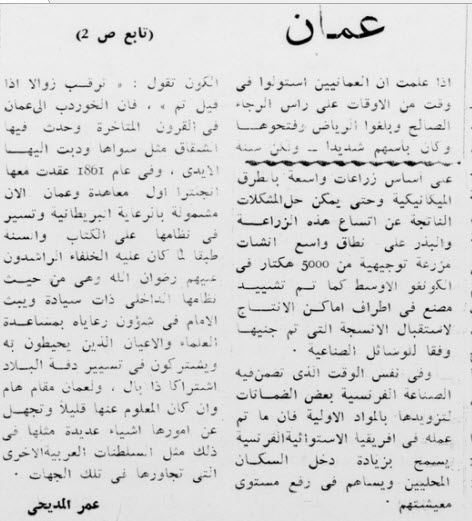 عمان
(تابع ص 2)
اذا علمت ان العمانيين استولوا فى
وقت من الاوقات على راس الرجاء
الصالح وبلغوا الرياض وفتحوها
وكان بأسهم شديدا ــ ولكن سنة
على اساس زراعات واسعة بالطرق
الميكانيكية وحتى يمكن حل المشكلات
الناتجة عن اتساع هذه الزراعة
والبذر على نطاق واسع انشات
مزرعة توجيهية من 5000 هكتار فى
الكونغو الاوسط كما تم تشييد
مصنع فى اطراف اماكن الانتاج
لاستقبال الانسجة التى تم جنيها
وفقا للوسائل الصناعية .
وفى نفس الوقت الذى تضمن فيه
الصناعة الفرنسية بعض الضمانات
لتزويدها بالمواد الاولية فان ما تم
عمله فى افريقيا الاستوائية الفرنسية
يسمح بزيادة دخل السكان
المحليين ويساهم فى رفع مستوى
معيشتهم .
الكون تقول : « ترقب زوالا اذا
قيل تم » ، فان الخور دب الى عمان
فى القرون المتاخرة وحدث فيها
الشقاق مثل سواها ودبت اليها
الايدى ، وفى عام 1861 عقدت معها
انجلترا اول معاهدة وعمان الان
مشمولة بالرعاية البريطانية وتسير
فى نظامها على الكتاب والسنة
طبقا لما كان عليه الخلفاء الراشدون
عليهم رضوان الله وهى من حيث
نظامها الداخلى ذات سيادة ويبث
الامام فى شؤون رعاياه بمساعدة
العلماء والاعيان الذين يحيطون به
ويشتركون فى تسيير دفة البلاد
اشتراكا ذا بال ، ولعمان مقام هام
وان كان المعلوم عنها قليلا وتجهل
عن امورها اشياء عديدة مثلها فى
ذلك مثل السلطنات العربية الاخرى
التى تجاورها فى تلك الجهات .
عمر المديحى